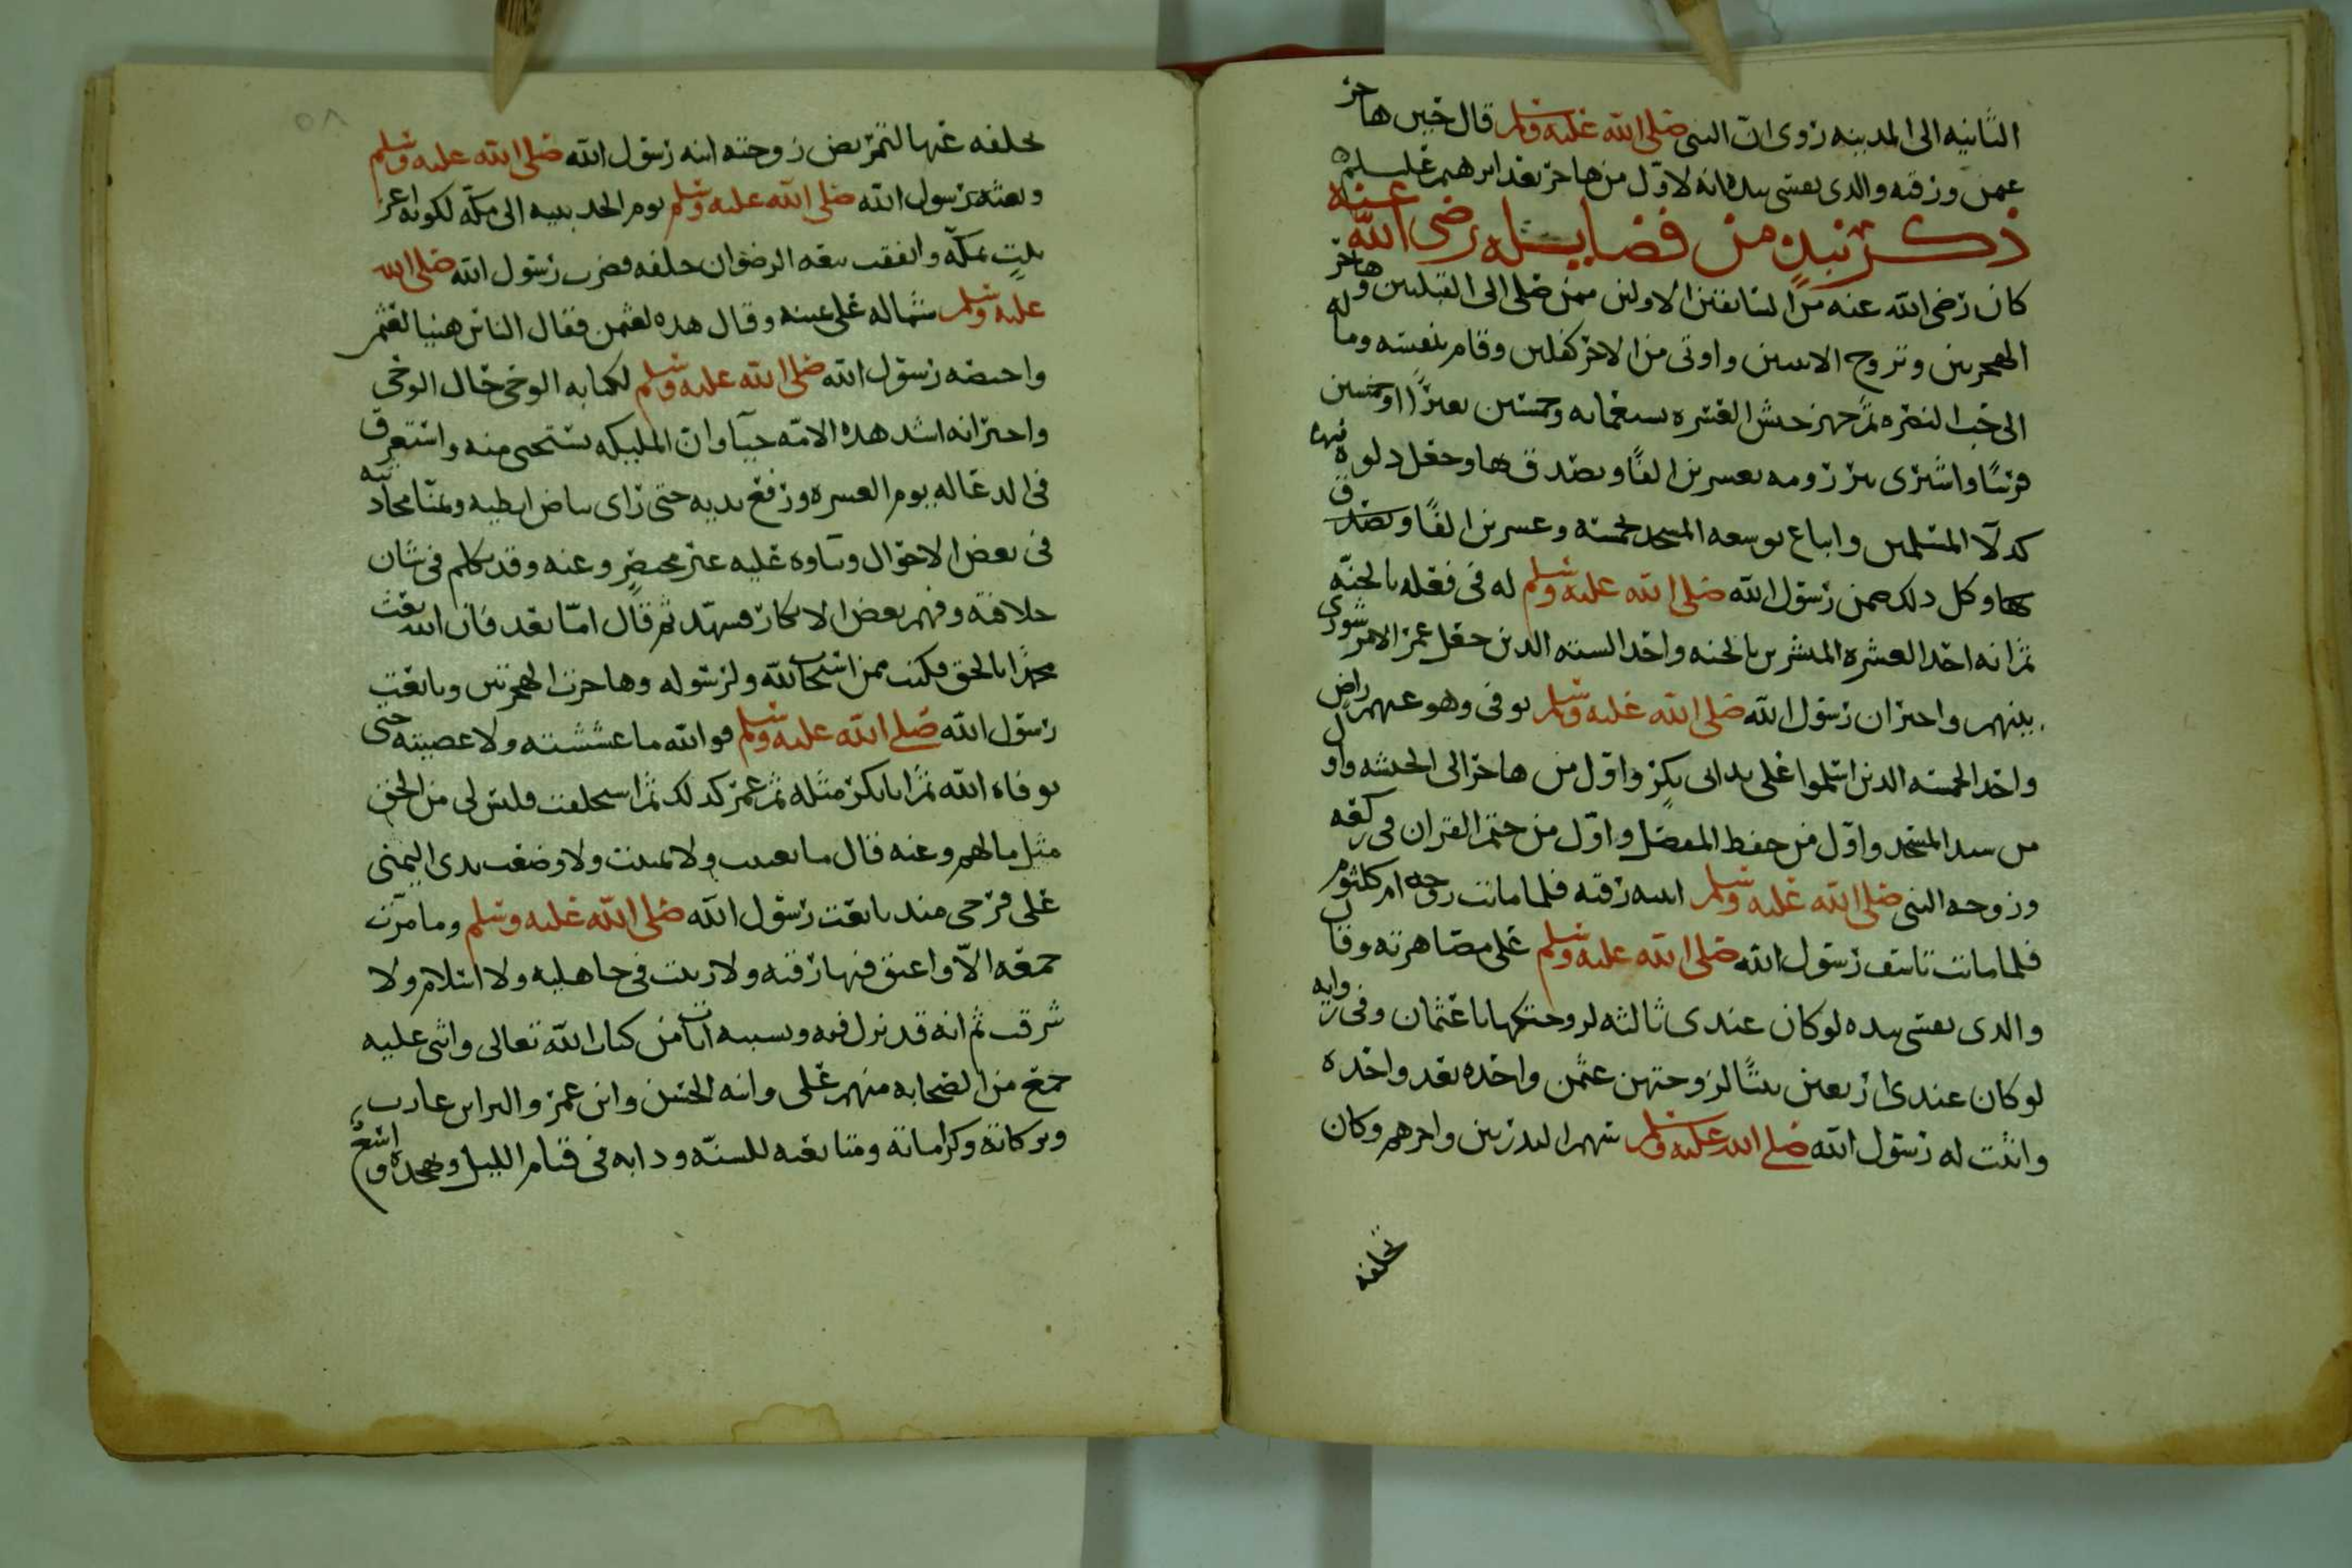 الثانيه الى المدينه روى ان النبى صلى الله عليه وسلم قال حين هاجر
عثمن ورقيه والدى نفسى بيده انه لاول من هاجر بعد ابرهيم
ذكر نبذٍ من فضايله رضى الله عنه
كان رضى الله عنه من السابقين الاولين ممن صلى الى القبلتين وهاجر
الهجرتين وتزوج الابنتين واوتى من الاجر كفلين وقام بنفسه وما له
الى النصره ثم جهز جيش العسره بسبعمايه وخمسين بعيرًا وخمسين
فرسًا واشترى بير رومه بعشرين الفًا وتصدق بها وجعل دلوه فيها
كدلآ المسلمين وابتاع توسعه المسجد بخمسه وعشرين الفًا وتصدق
بها وكل دلك ضمن رسول الله صلى الله عليه وسلم له فى فعله بالجنه
ثم انه احد العشره المبشرين بالجنه واحد السته الدين جعل عمر الامر شورى
بينهم واخبر ان رسول الله صلى الله عليه وسلم توفى وهو عنهم راض
واحد الخمسه الدين اسلموا على يد ابى بكر واول من هاجر الى الحبشه واول
من المسجد واول من حفظ المفصل واول من ختم القران فى ركعه
وزوجه النبى صلى الله عليه وسلم ابنته رقيه فلما ماتت زوجه ام كلثوم
فلما ماتت تاسف رسول الله صلى الله عليه وسلم على مصاهرته وقال
والدى نفسى بيده لو كان عندى ثالثه لزوجتكها يا عثمان وفى روايه
لو كان عندى اربعين بنتًا لزوجتهن عثمن واحده بعد واحده
واثبت له رسول الله صلى الله عليه وسلم سهم البدريين واجرهم وكان
تخلفه
تخلفه عنها لتمريض زوجته ابنه رسول الله صلى الله عليه وسلم
وبعثه رسول الله صلى الله عليه وسلم يوم الحديبيه الى مكه لكونه اعز
بيتٍ بمكه واتفقت بيعه الرضوان خلفه فضرب رسول الله صلى الله
عليه وسلم شماله على يمينه وقال هده لعثمن فقال الناس هنيا لعثمن
واختصه رسول الله صلى الله عليه وسلم لكتابه الوحى حال الوحى
واخبر انه اشد هده الامه حيآ وان المليكه تستحى منه واستغرق
فى الدعا له يوم العسره ورفع يديه حتى راى بياض ابطيه
فى بعض الاحوال وتناوه عليه غير محصرٍ وعنه وقد تكلم فى شان
خلافته وفهم بعض الانكار فتشهد ثم قال اما بعد فان الله بعث
محمدًا بالحق فكنت ممن استجاب لله ولرسوله وهاجرت الهجرتين وبايعت
رسول الله صلى الله عليه وسلم فوالله ما غششته ولا عصيته حتى
توفاه الله ثم ابابكر مثله ثم عمر كدلك ثم استخلفت فليس لى من الحق
مثل ما لهم وعنه قال ما تغنيت ولا تمنيت ولا وضعت يدى اليمنى
على فرجى مند بايعت رسول الله صلى الله عليه وسلم وما مرت
جمعه الا واعتق فيها رقبه ولا زنيت فى جاهليه ولا اسلام ولا
سرقت ثم انه قد نزل فيه وبسببه ايات من كتاب الله تعالى واثنى عليه
جمع من الصحابه منهم على وابنه الحسن وابن عمر والبرا بن عازب
وبركاته وكراماته ومتابعته للسنه ودابه فى قيام الليل وتهجده و